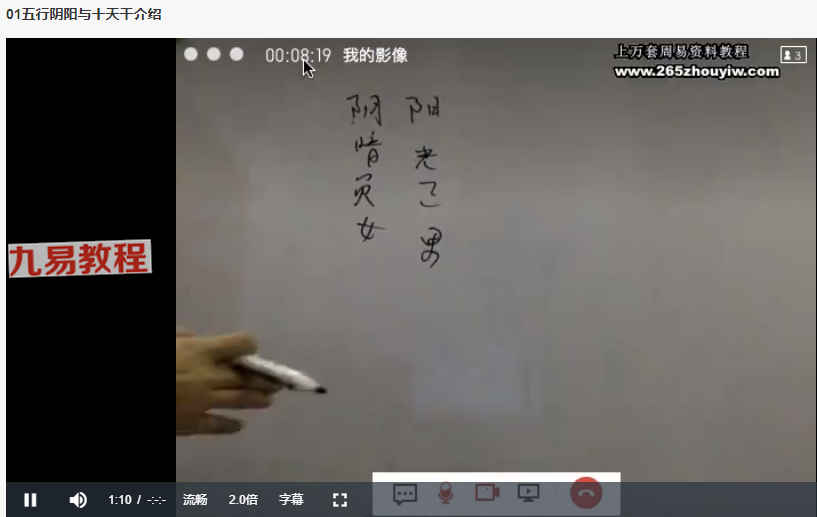 01五行阴阳与十天干介绍
00:08:19 我的影像
上万套周易资料教程
www.265zhouyiw.com
3
阳光正男
阴暗负女
九易教程
1:10 / -:-:-
流畅
2.0倍
字幕